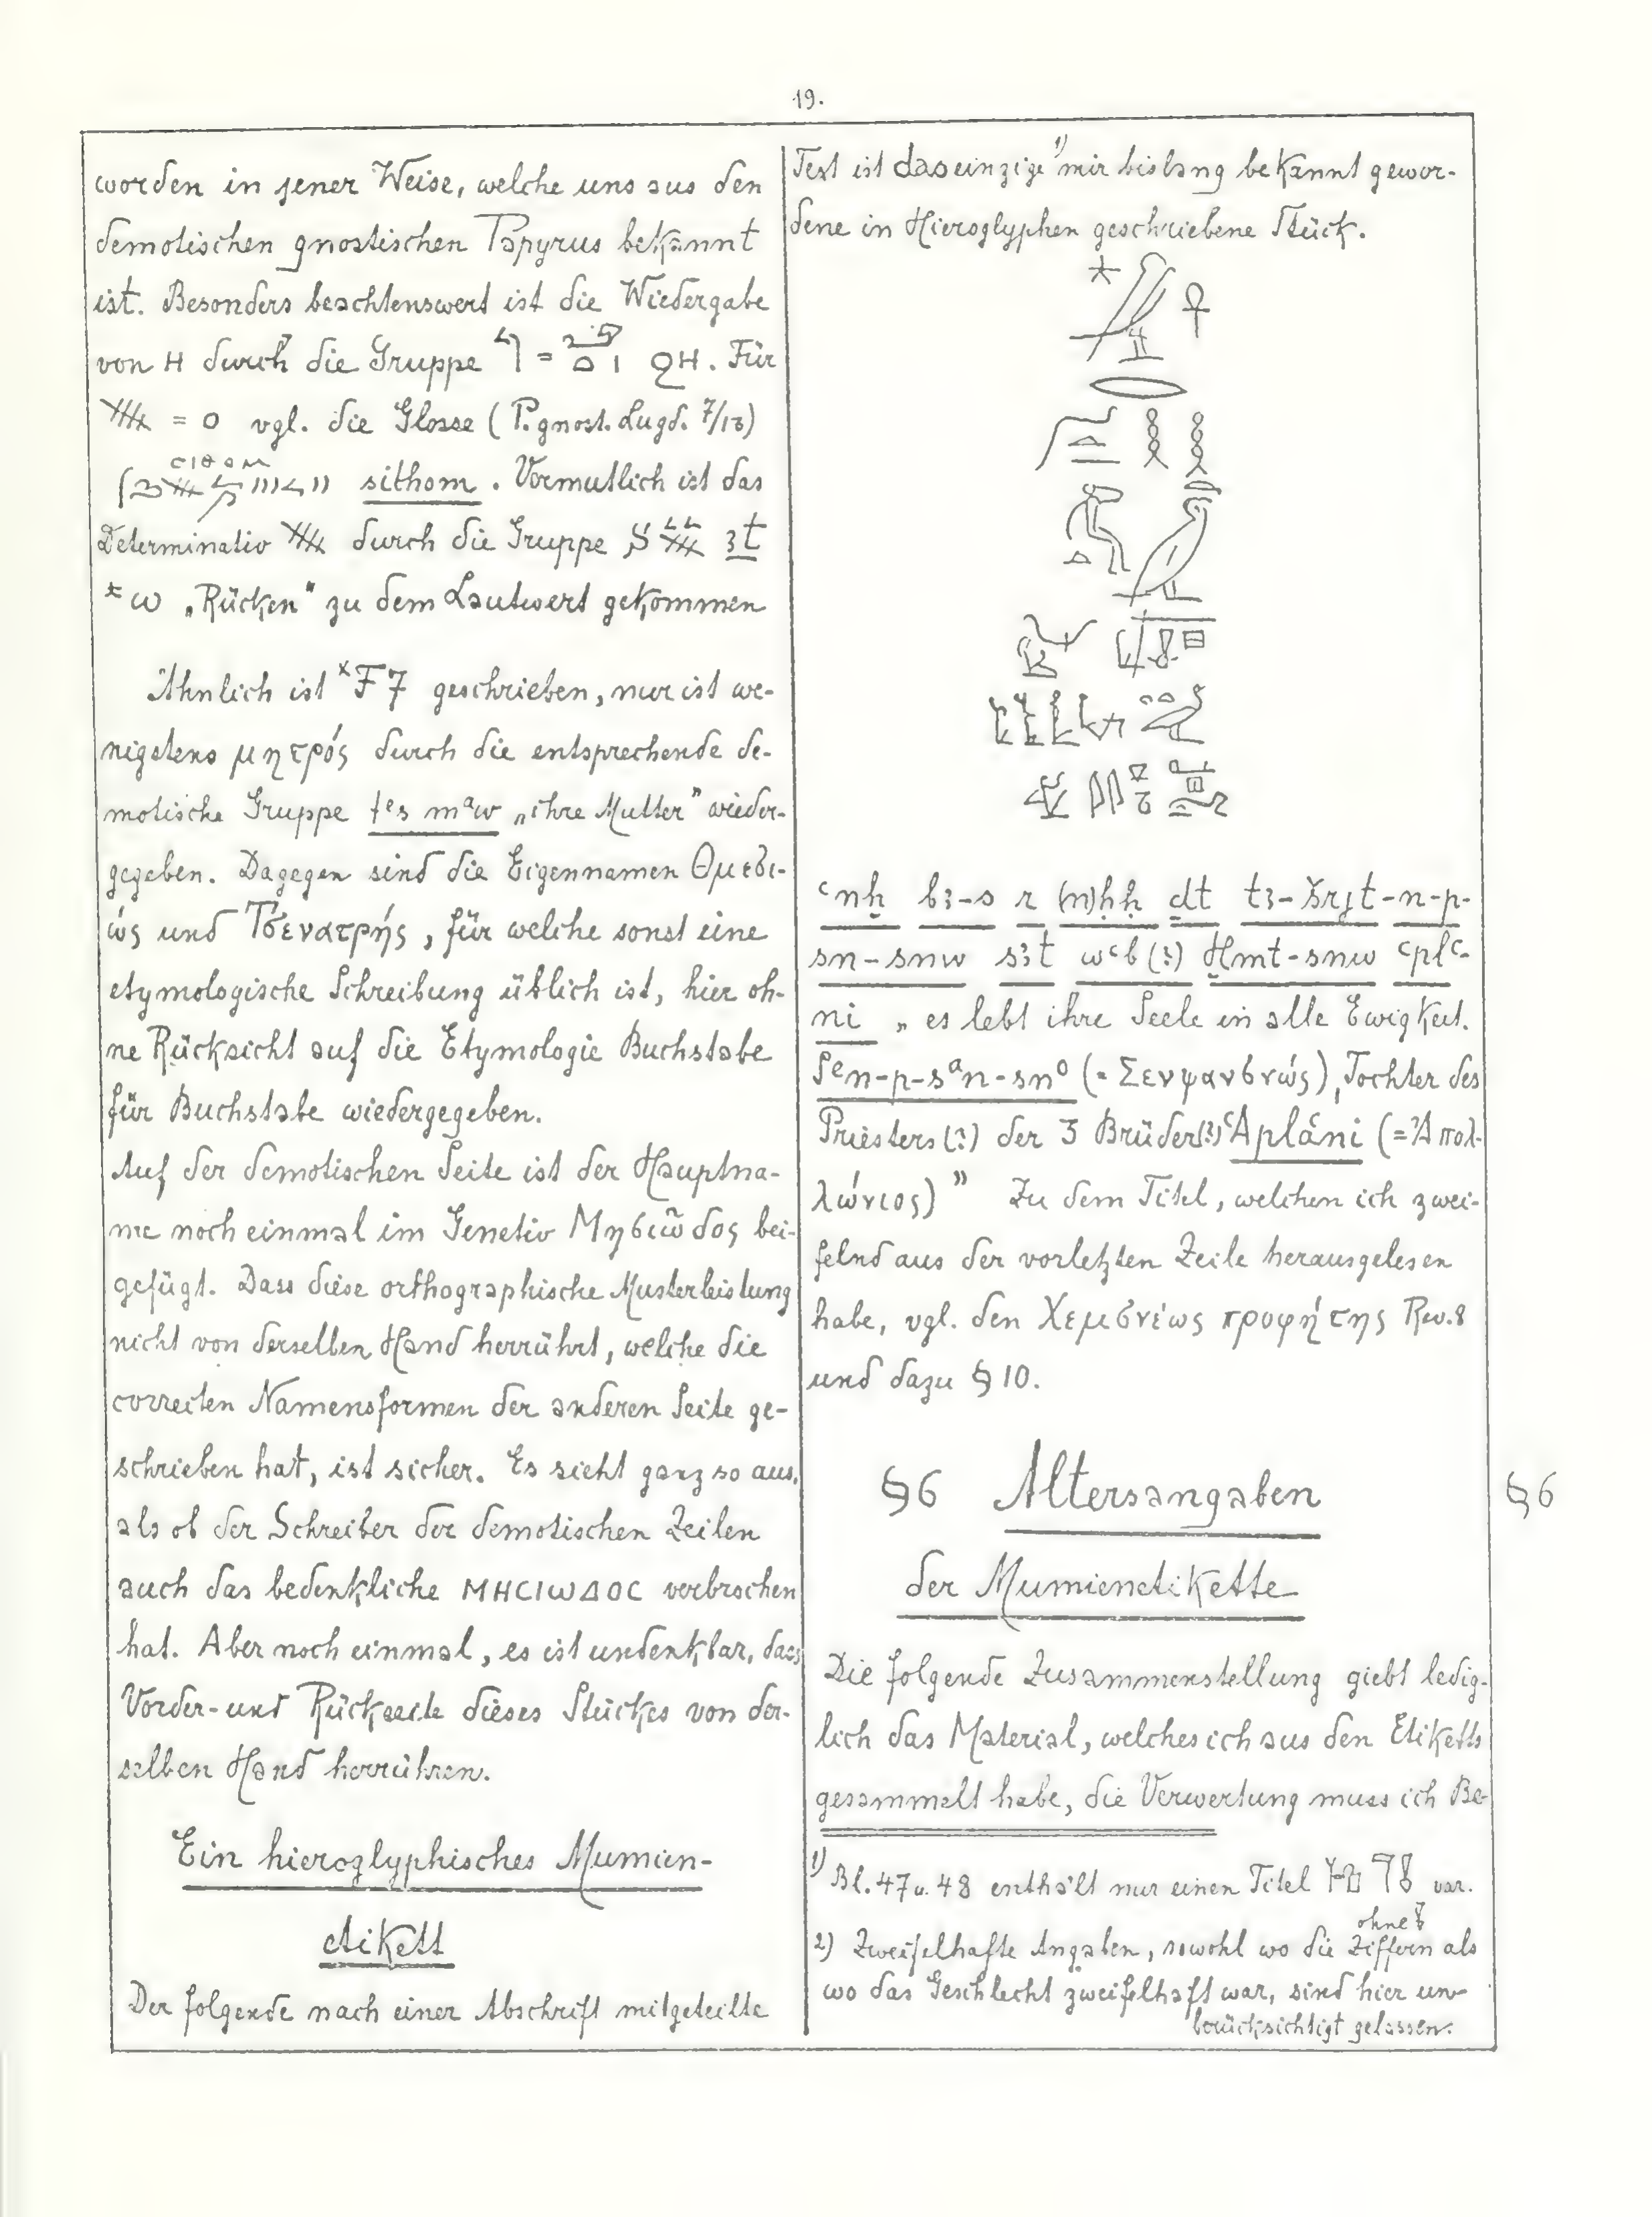 19.
worden in jener Weise, welche uns aus den
demotischen gnostischen Papyrus bekannt
ist. Besonders beachtenswert ist die Wiedergabe
von H durch die Gruppe = ϨH. Für
= o vgl. die Glosse (P. gnost. Lugd. 7/18)
ⲥⲓⲑⲟⲙ
sithom. Vermutlich ist das
Determinativ durch die Gruppe ꜣt
*ω „Rücken" zu dem Lautwert gekommen
Ähnlich ist ˣF 7 geschrieben, nur ist we-
nigstens μητρός durch die entsprechende de-
motische Gruppe tᵉs mᵃw „ihre Mutter" wieder-
gegeben. Dagegen sind die Eigennamen Θμεσι-
ώς und Τσενατρής, für welche sonst eine
etymologische Schreibung üblich ist, hier oh-
ne Rücksicht auf die Etymologie Buchstabe
für Buchstabe wiedergegeben.
Auf der demotischen Seite ist der Hauptna-
me noch einmal im Genetiv Μησιῶδος bei-
gefügt. Dass diese orthographische Musterleistung
nicht von derselben Hand herrührt, welche die
correcten Namensformen der anderen Seite ge-
schrieben hat, ist sicher. Es sieht ganz so aus,
als ob der Schreiber der demotischen Zeilen
auch das bedenkliche ΜΗCΙωΔΟC verbrochen
hat. Aber noch einmal, es ist undenkbar, dass
Vorder- und Rückseite dieses Stückes von der-
selben Hand herrühren.
Ein hieroglyphisches Mumien-
etikett
Der folgende nach einer Abschrift mitgeteilte
Text ist das einzige ¹⁾ mir bislang bekannt gewor-
dene in Hieroglyphen geschriebene Stück.
ꜥnḫ bꜣ-s r (n)ḥḥ ḏt tꜣ-šrjt-n-p-
sn-snw sꜣt wꜥb (?) Ḫmt-snw ꜥplꜥ-
ni „es lebt ihre Seele in alle Ewigkeit.
Šᵉn-p-sᵃn-snᵒ (= Σενψανσνώς), Tochter des
Priesters (?) der 3 Brüder (?) ꜥAplání (= Ἀπολ-
λώνιος)" Zu dem Titel, welchen ich zwei-
felnd aus der vorletzten Zeile herausgelesen
habe, vgl. den Χεμσνέως προφήτης Rev. 8
und dazu § 10.
§6 Altersangaben
§6
der Mumienetikette
Die folgende Zusammenstellung giebt ledig-
lich das Material, welches ich aus den Etiketts
gesammelt habe, die Verwertung muss ich Be-
1) Bl. 47 u. 48 enthält nur einen Titel var.
ohne
2) Zweifelhafte Angaben, sowohl wo die Ziffern als
wo das Geschlecht zweifelhaft war, sind hier un-
berücksichtigt gelassen.